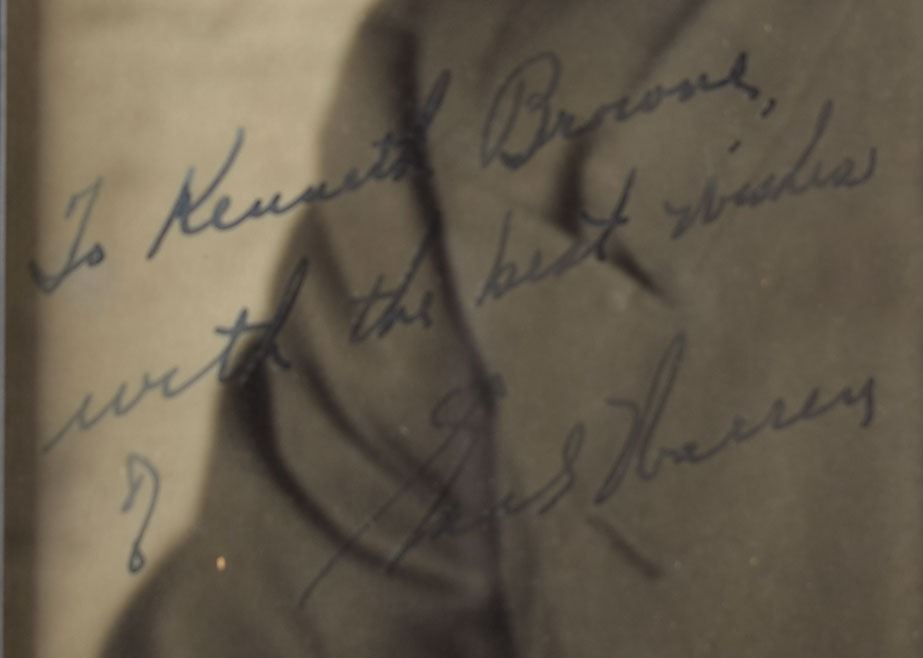 To Kenneth Browne,
with the best wishes
of
Earl Warren